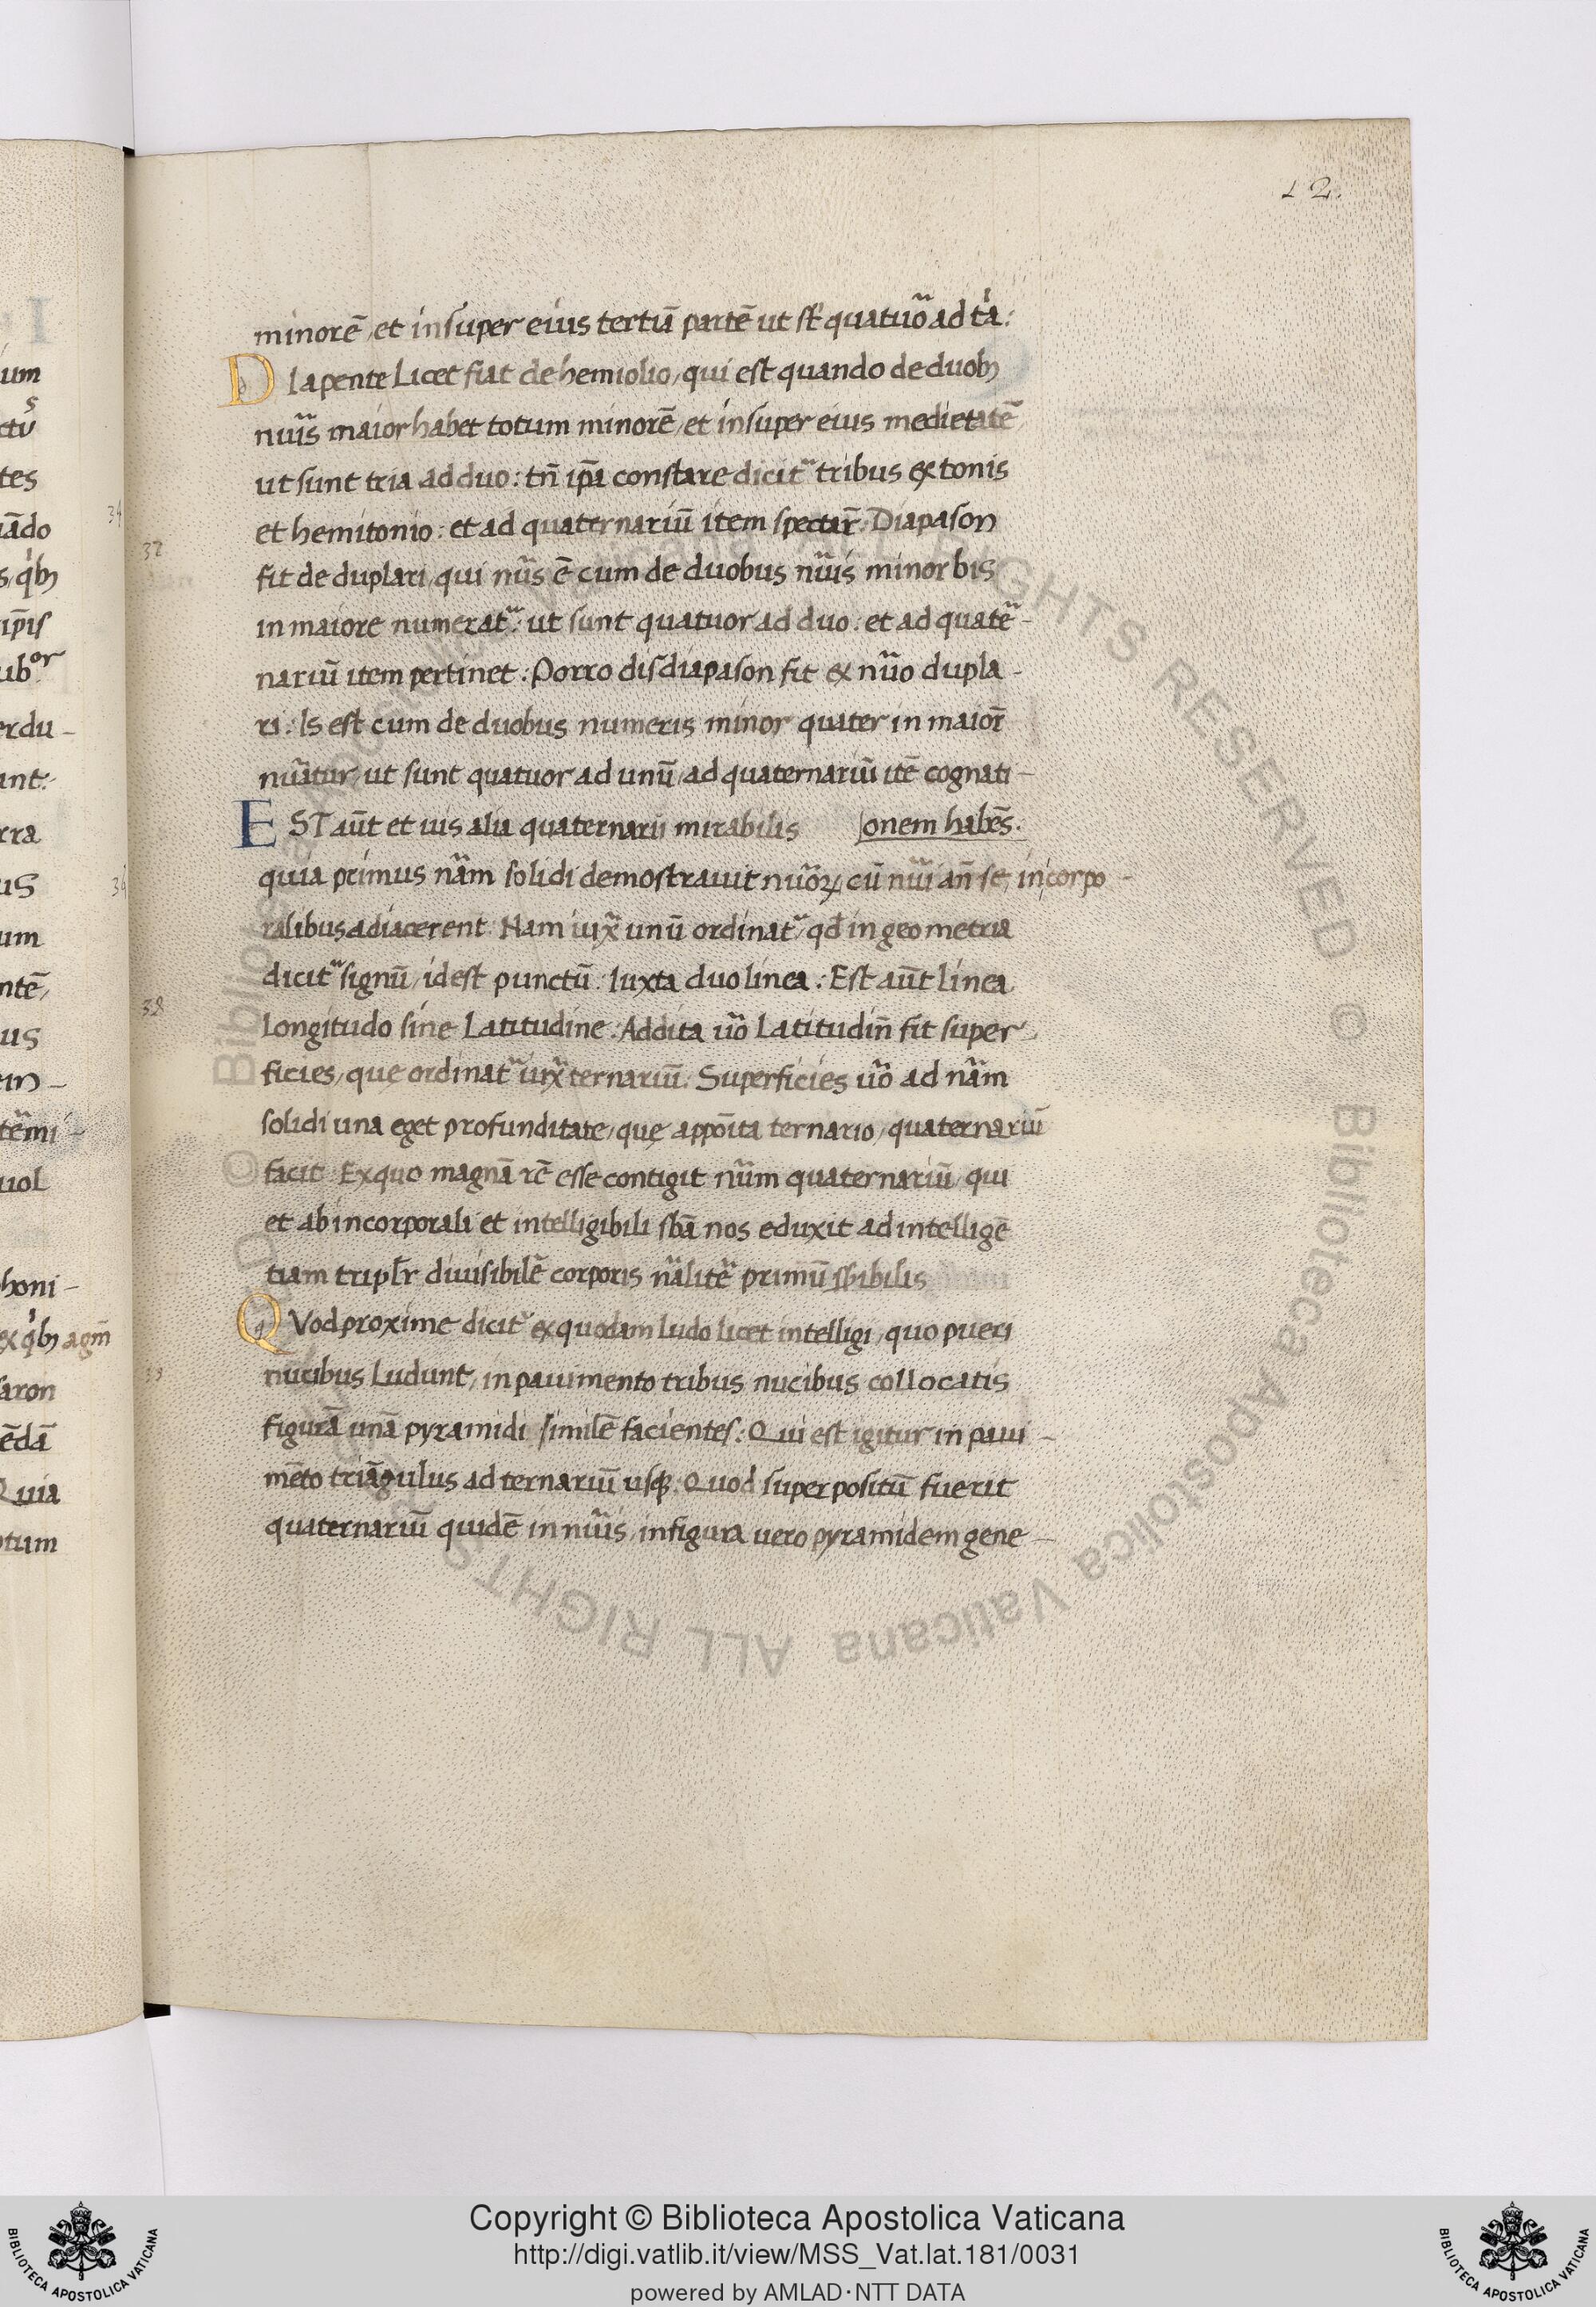 12.
minorē, et insuper eius tertiā partē ut st̄ quatuõ ad tⁱa:
DIapente Licet fiat de hemiolio, qui est quando de duobꝫ
nũis maior habet totum minorē, et insuper eius medietatē,
ut sunt tria ad duo: tn̄ ip̄a constare dicit̃ tribus ex tonis
et hemitonio: et ad quaternariū item spectar̄: Diapason
fit de duplari, qui nũs ē cum de duobus nũis minor bis
in maiore numerat̃: ut sunt quatuor ad duo: et ad quatẽ-
nariū item pertinet: Porro disdiapason fit ex nũo dupla-
ri: Is est cum de duobus numeris minor quater in maior̄
nũatur, ut sunt quatuor ad unū, ad quaternariū itē cognati-
EST aūt et uis alia quaternarii mirabilis onem habēs.
quia primus nãm solidi demostrauit nũoꝝ, cū nũi an̄ se, incorpo-
ralibus adiacerent: Nam iux̃ unū ordinat̃, qd̄ in geometria
dicit̃ signū, idest punctū: Iuxta duo linea: Est aūt linea
Longitudo sine Latitudine: Addita ũo Latitudin̄ fit super
ficies, que ordinat̃ iux̃ ternariū: Superficies ũo ad nãm
solidi una eget profunditate, quę appōita ternario, quaternariū
facit: Ex quo magnā rē esse contigit nũm quaternariū, qui
et ab incorporali et intelligibili sbā nos eduxit ad intelligē
tiam tripl̄r diuisibilē corporis nãlitẽ primū sbibilis
QVod proxime dicit̃ ex quodam ludo licet intelligi, quo pueri
nucibus Ludunt, in pauimento tribus nucibus collocatis
figurā unā pyramidi similē facientes: Qui est igitur in paui-
mēto triāgulus ad ternariū usqꝫ: Quod superpositū fuerit
quaternariū quidē in nũis, in figura uero pyramidem gene-
37
38
um
tes
iādo
ip̄is
erdu-
unt:
rra
us
um
ntē,
us
ein-
uol
honi-
ex qⁱbꝫ agm̄
saron
ēdā
Quia
otum
© Biblioteca Apostolica Vaticana ALL RIGHTS RESERVED © Biblioteca Apostolica Vaticana ALL RIGHTS
Copyright © Biblioteca Apostolica Vaticana
http://digi.vatlib.it/view/MSS_Vat.lat.181/0031
powered by AMLAD·NTT DATA
BIBLIOTECA APOSTOLICA VATICANA
BIBLIOTECA APOSTOLICA VATICANA